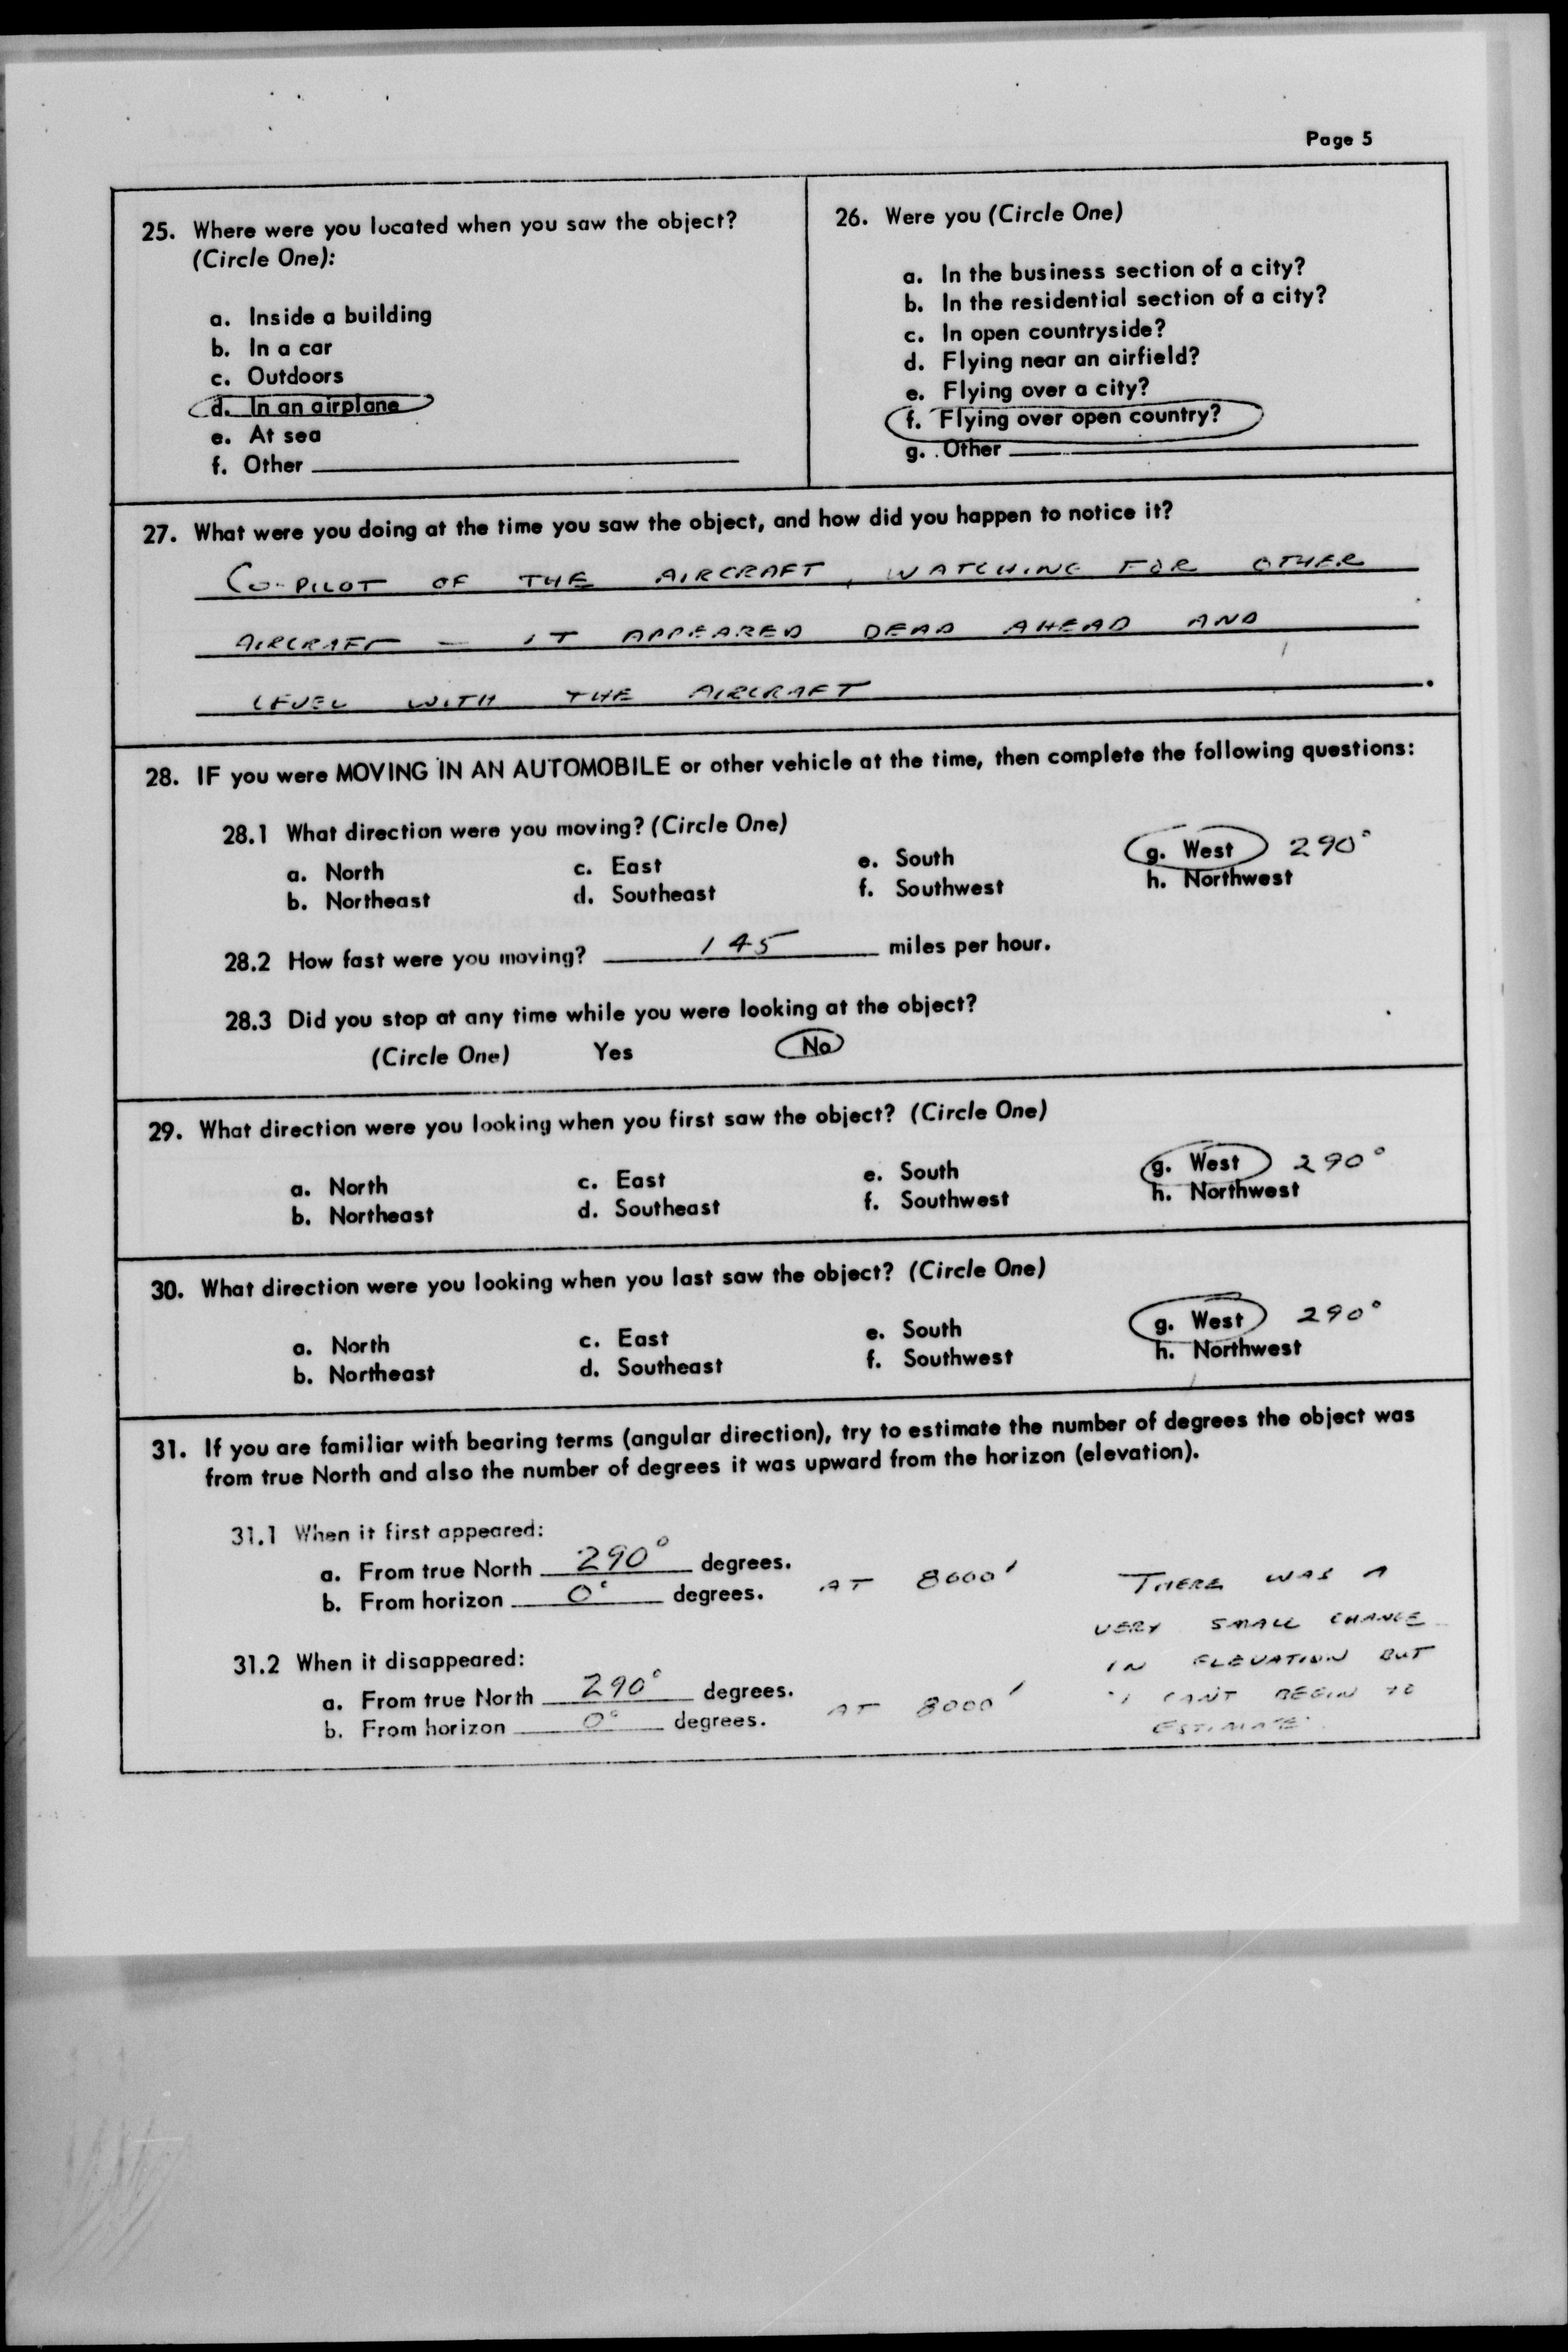 Page 5
25. Where were you located when you saw the object?
(Circle One):
a. Inside a building
b. In a car
c. Outdoors
d. In an airplane
e. At sea
f. Other
26. Were you (Circle One)
a. In the business section of a city?
b. In the residential section of a city?
c. In open countryside?
d. Flying near an airfield?
e. Flying over a city?
f. Flying over open country?
g. Other
27. What were you doing at the time you saw the object, and how did you happen to notice it?
CO-PILOT OF THE AIRCRAFT, WATCHING FOR OTHER
AIRCRAFT – IT APPEARED DEAD AHEAD AND
LEVEL WITH THE AIRCRAFT.
28. IF you were MOVING IN AN AUTOMOBILE or other vehicle at the time, then complete the following questions:
28.1 What direction were you moving? (Circle One)
a. North c. East e. South g. West 290°
b. Northeast d. Southeast f. Southwest h. Northwest
28.2 How fast were you moving? 145 miles per hour.
28.3 Did you stop at any time while you were looking at the object?
(Circle One) Yes No
29. What direction were you looking when you first saw the object? (Circle One)
a. North c. East e. South g. West 290°
b. Northeast d. Southeast f. Southwest h. Northwest
30. What direction were you looking when you last saw the object? (Circle One)
a. North c. East e. South g. West 290°
b. Northeast d. Southeast f. Southwest h. Northwest
31. If you are familiar with bearing terms (angular direction), try to estimate the number of degrees the object was
from true North and also the number of degrees it was upward from the horizon (elevation).
31.1 When it first appeared:
a. From true North 290° degrees.
b. From horizon 0° degrees. AT 8000'
31.2 When it disappeared:
a. From true North 290° degrees.
b. From horizon 0° degrees. AT 8000'
THERE WAS A
VERY SMALL CHANGE
IN ELEVATION BUT
I CAN'T BEGIN TO
ESTIMATE.